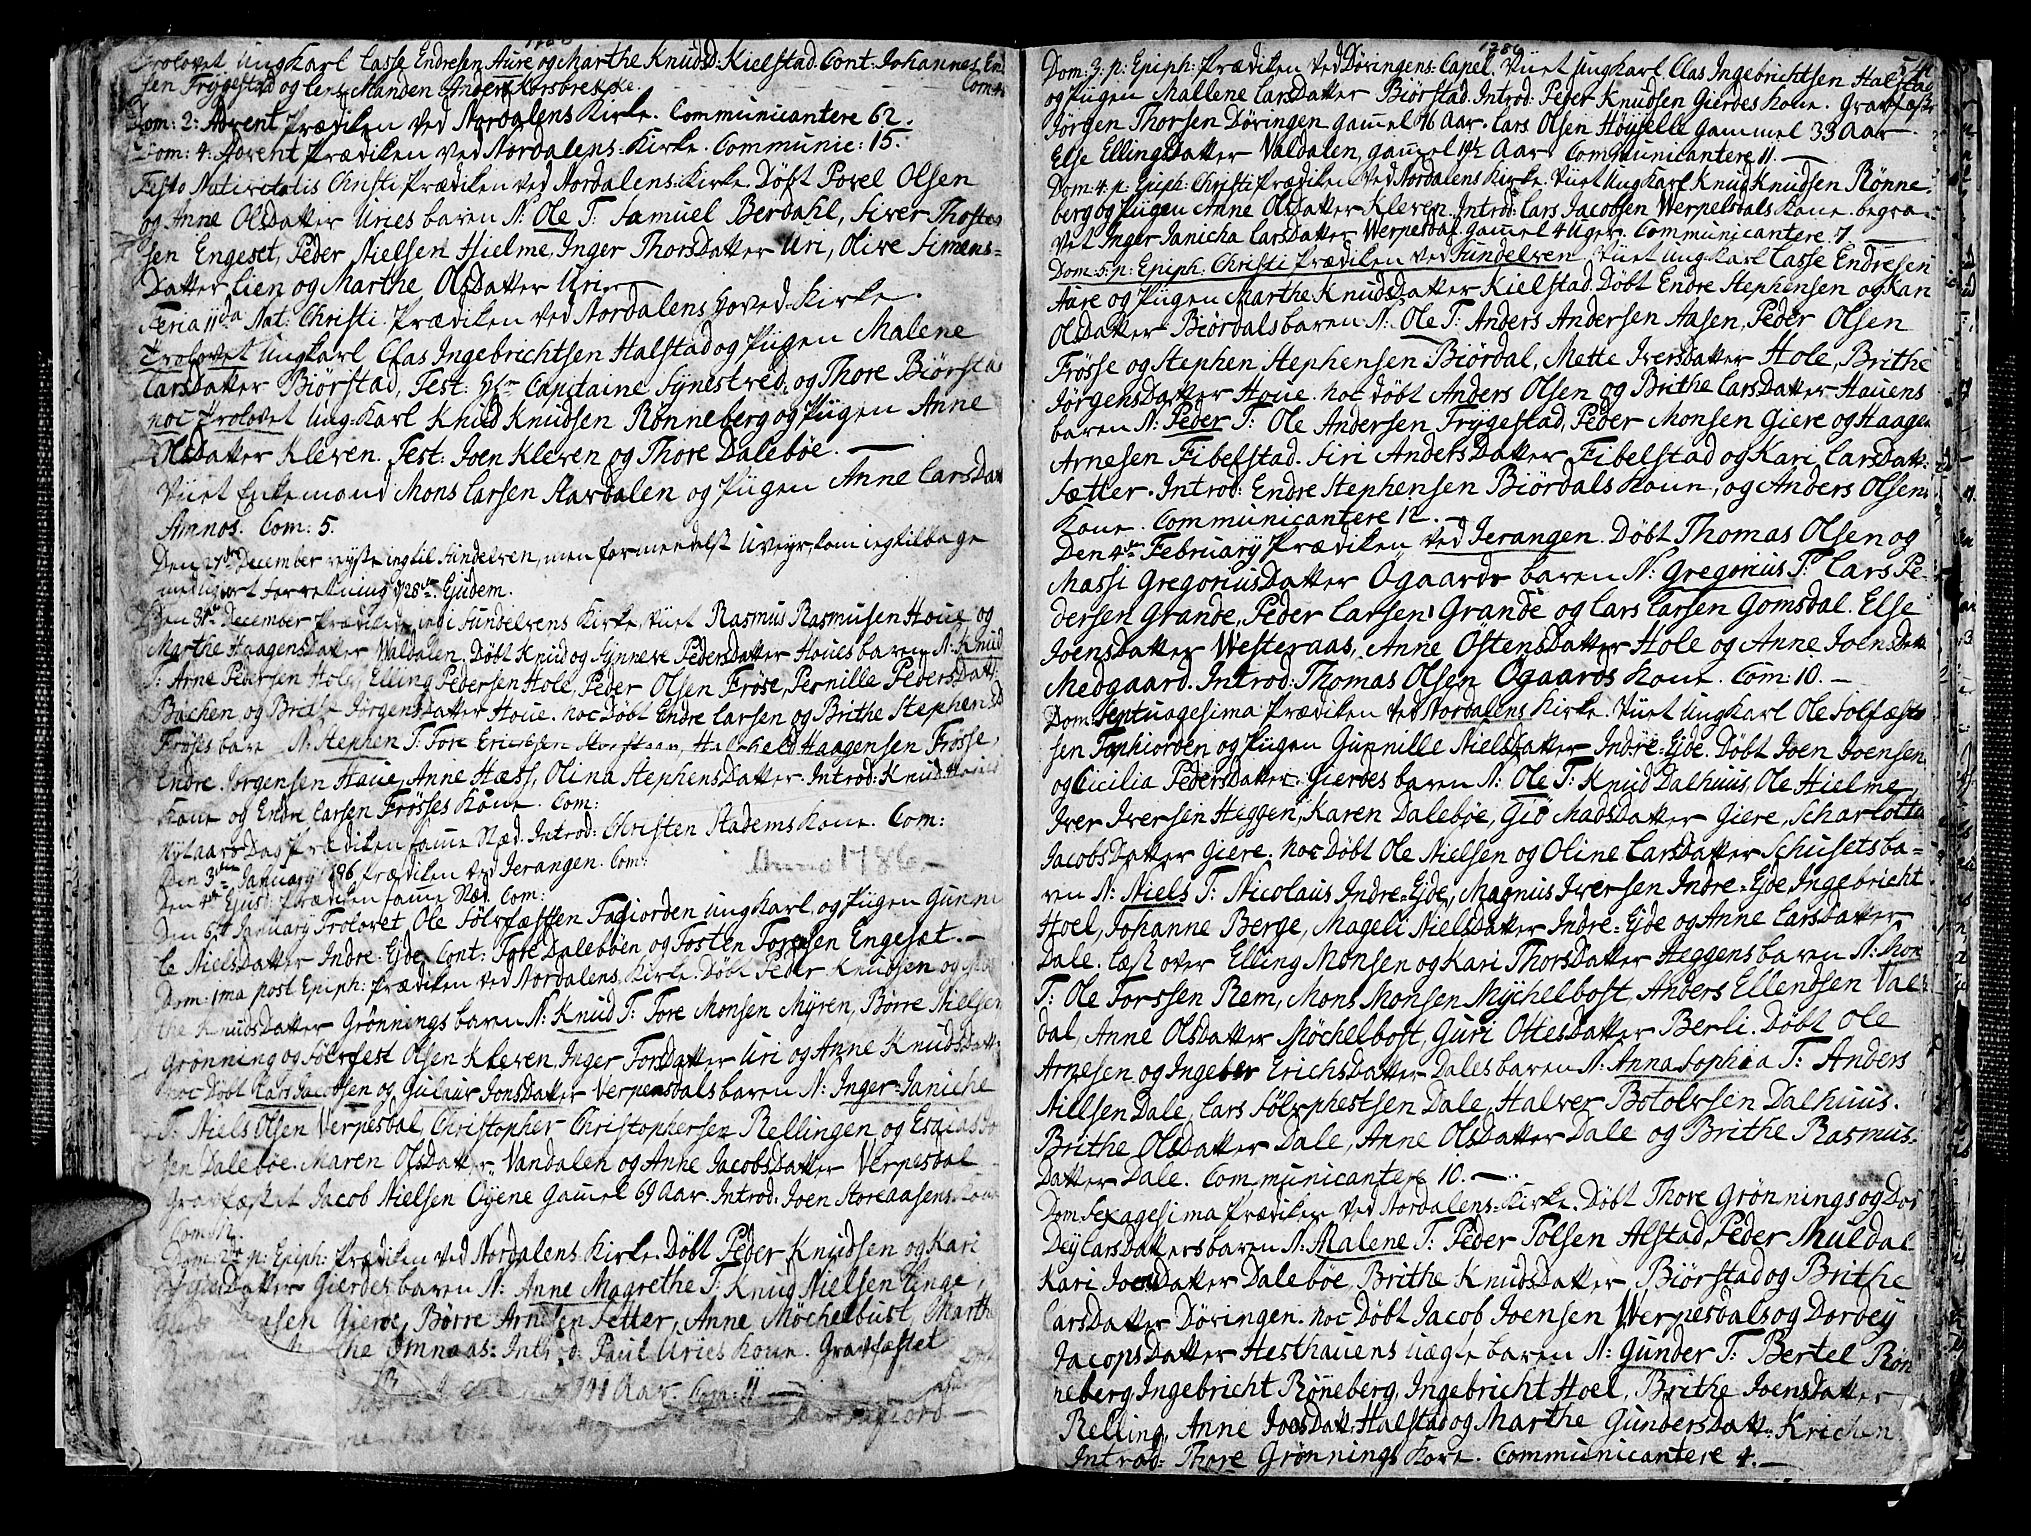 Trolovet Ungkarl Lasse Endresen Aure og Marthe Knudsd: Kielstad. Cont: Johannes En-
sen Frygestad og Lens Manden Anders Korsbrekke. Com:
Dom: 2: Advent Prædiken ved Nordalens Kirke. Communicantere 62.
Dom: 4: Advent Prædiken ved Nordalens Kirke. Communic: 15.
Festo Nativitatis Christi Prædiken ved Nordalens Kirke. Døbt Povel Olsen
og Anne Olsdatter Uries baren N: Ole T: Samuel Berdahl, Siver Thostes
sen Engeset, Peder Nielsen Hielme, Inger Thorsdatter Uri, Olive Simens-
Datter Lien og Marthe Olsdatter Uri.
Feria IIda Nat: Christi Prædiken ved Nordalens Hoved-Kirke.
Trolovet Ungkarl Clas Ingebrichtsen Halstad og Pigen Malene
Larsdatter Biørstad, Test: Hr Capitaine Synestved og Thore Biørstad
noc Trolovet Ungkarl Knud Knudsen Rønneberg og Pigen Anne
Olsdatter Kleven. Test: Joen Kleven og Thore Dalebøe.
Viiet Enkemand Mons Larsen Stavdalen og Pigen Anne Larsdatt
Amnos. Com: 5.
Den 27de December reyste ieg til Sundelven, men formedelst Uveyr, kom ieg tilbage
med giort forretning d 28de Ejusdem.
Den 31te December Prædiken ved Sundelvens Kirke, viiet Rasmus Rasmusen Houe og
Marthe Haagensdatter Waldalen. Døbt Knud og Synneve Pedersdatter Houes baren N: Knud
T: Arne Pedersen Hole, Elling Pedersen Hole, Peder Olsen Frøse, Pernille Pedersdatt:
Bachen og Brithe Jørgensdatter Houe. noc Døbt Endre Larsen og Brithe Stephensd
Frøses bare N: Stephen T: Tore Ericksen Haagensen Frøsse,
Endre Jørgensen Houe, Anne Hæss, Olina Stephensdatter. Introd: Knud Houes
Kone og Endre Larsen Frøsses Kone. Com:
Nytaars Dag Prædiken samme Stæd. Introd: Christen Stadems Kone. Com:
Anno 1786
Den 3die January 1786 Prædiken ved Jerangen. Com:
Den 4de Ejusd: Prædiken samme Stæd. Com:
Den 6te January Trolovet Ole Sølvfæstsen Tafiorden Ungkarl og Pigen Gunni
le Nielsdatter Indre-Eyde. Cont: Tore Dalebøen og Tosten Toresen Engeset.
Dom: 1ma post Epiph: Prædiken ved Nordalens Kirke. Døbt Peder Knudsen og
the Knudsdatter Grønnings baren N: Knud T: Tore Monsen Myren, Børre Nielsen
Grønning og Sølvfest Olsen Kleven, Inger Torsdatter Uri og Anne Knudsdatter
noc Døbt Lars Jacobsen og Guluur Jonsdatter Verpesdals baren N: Inger-Janiche
T: Niels Olsen Verpesdal, Christopher Christophersen Rellingen og Esaias Jo
sen Dalebøe. Maren Olsdatter Vandalen og Anne Jacobsdatter Verpesdal
Gravfæstet Jacob Nielsen Øyene gamel 69 Aar. Introd: Joen Storeaasens Kone
Com: 12.
Dom: 2de p: Epiph: Prædiken ved Nordalens Kirke. Døbt Peder Knudsen og Kari
datter Gierdes baren N: Anne Magrethe T: Knud Nielsen Linge,
sen Gierde, Børre Arnesen Setter, Anne Møchelbust, Marthe
the Omnaas: Introd: Paul Uries Kone. Gravfæstet
Aar. Com: 11
1786
Dom: 3: p: Epiph: Prædiken ved Døringens Capel. Viiet Ungkarl Clas Ingebrichtsen Halstad
og Pigen Mallene Larsdatter Biørstad. Introd: Peder Knudsen Gierdes Kone. Gravfæst
Jørgen Thorsen Døringen gamel 76 Aar. Lars Olsen Høysette gammel 33 Aar
Else Ellingsdatter Valdalen, gamel 19½ Aar. Communicantere 11.
Dom: 4: p: Epiph: Christi Prædiken ved Nordalens Kirke. Viiet Ungkarl Knud Knudsen Rønne-
berg og Pigen Anne Olsdatter Kleven. Introd: Lars Jacobsen Werpelsdals Kone. begra-
vet Inger Janicha Larsdatter Werpesdal gamel 4 Uger. Communicantere. 7
Dom: 5: p: Epiph: Christi Prædiken ved Sundelven Viiet Ungkarl Lasse Endresen
Aure og Pigen Marthe Knudsdatter Kielstad. Døbt Endre Stephensen og Kari
Olsdatter Biørdals baren N: Ole T: Anders Andersen Aasen, Peder Olsen
Frøsse og Stephen Stephensen Biørdal, Mette Iversdatter Hole, Brithe
Jørgensdatter Houe. noc døbt Anders Olsen og Brithe Larsdatter Hauens
baren N: Peder T: Ole Andersen Frygestad, Peder Monsen Giere og Haagen
Arnesen Fibelstad. Siri Andersdatter Fibelstad og Kari Larsdatt:
Sætter. Introd: Endre Stephensen Biørdals Kone, og Anders Olsens
Kone. Communicantere 12.
Den 4de February Prædiken ved Jerangen. Døbt Thomas Olsen og
Massi Gregoriusdatter Øgaards baren N: Gregorius T: Lars Pe-
dersen Grande, Peder Larsen Grande og Lars Larsen Gomsdal. Else
Joensdatter Westeraas, Anne Østensdatter Hole og Anne Joensdatt
Medgaard. Introd: Thomas Olsen Øgaards Kone. Com: 10.
Dom: Septuagesima Prædiken ved Nordalens Kirke. Viiet Ungkarl Ole Sølfæst
sen Taphiorden og Pigen Gunnille Nielsdatter Indre-Eyde. Døbt Joen Joensen
og Cicilia Pedersdatter Gierdes baren N: Ole T: Knud Dalhuus, Ole Hielme,
Iver Iversen Heggen, Karen Dalebøe, Giø Madsdatter Giere, Scharlotta
Jacobsdatter Giere. noc Døbt Ole Nielsen og Oline Larsdatter Schusetsba-
ren N: Niels T: Nicolaus Indre-Eyde, Magnus Iversen Indre-Eyde Ingebricht
Hoel, Johanne Berge, Mageli Nielsdatter Indre-Eyde og Anne Larsdatter
Dale. Læst over Elling Monsen og Kari Thorsdatter Heggens baren N: Thor
T: Ole Torssen Rem, Mons Monsen Mychelbost, Anders Ellendsen Val-
dal, Anne Olsdatter Møchelbost, Guri Ottesdatter Berli. Døbt Ole
Arnesen og Ingeber Erichsdatter Dales baren N: Anna Sophia T: Anders
Nillsen Dale, Lars Sølvphestsen Dale, Halver Botolvsen Dalhuus.
Brithe Olsdatter Dale, Anne Olsdatter Dale og Brithe Rasmus-
Datter Dale. Communicantere 10.
Dom: Sexagesima Prædiken ved Nordalens Kirke. Døbt Thore Grønnings og Dor
Dey Larsdatters baren N: Malene T: Peder Polsen Alstad, Peder Muldal
Kari Joensdatter Dalebøe, Brithe Knudsdatter Biørstad og Brithe
Larsdatter Døringen. noc Døbt Jacob Joensen Werpesdals og Dordey
Jacopsdatter Hesthauens uægte baren N: Gunder T: Bertel Røn
neberg Ingebricht Røneberg, Ingebricht Hoel, Brithe Joensdatter
Relling, Anne Joesdatt: Halstad og Marthe Gundersdatt: Krichen.
Introd: Thore Grønnings Kone. Communicantere 4.